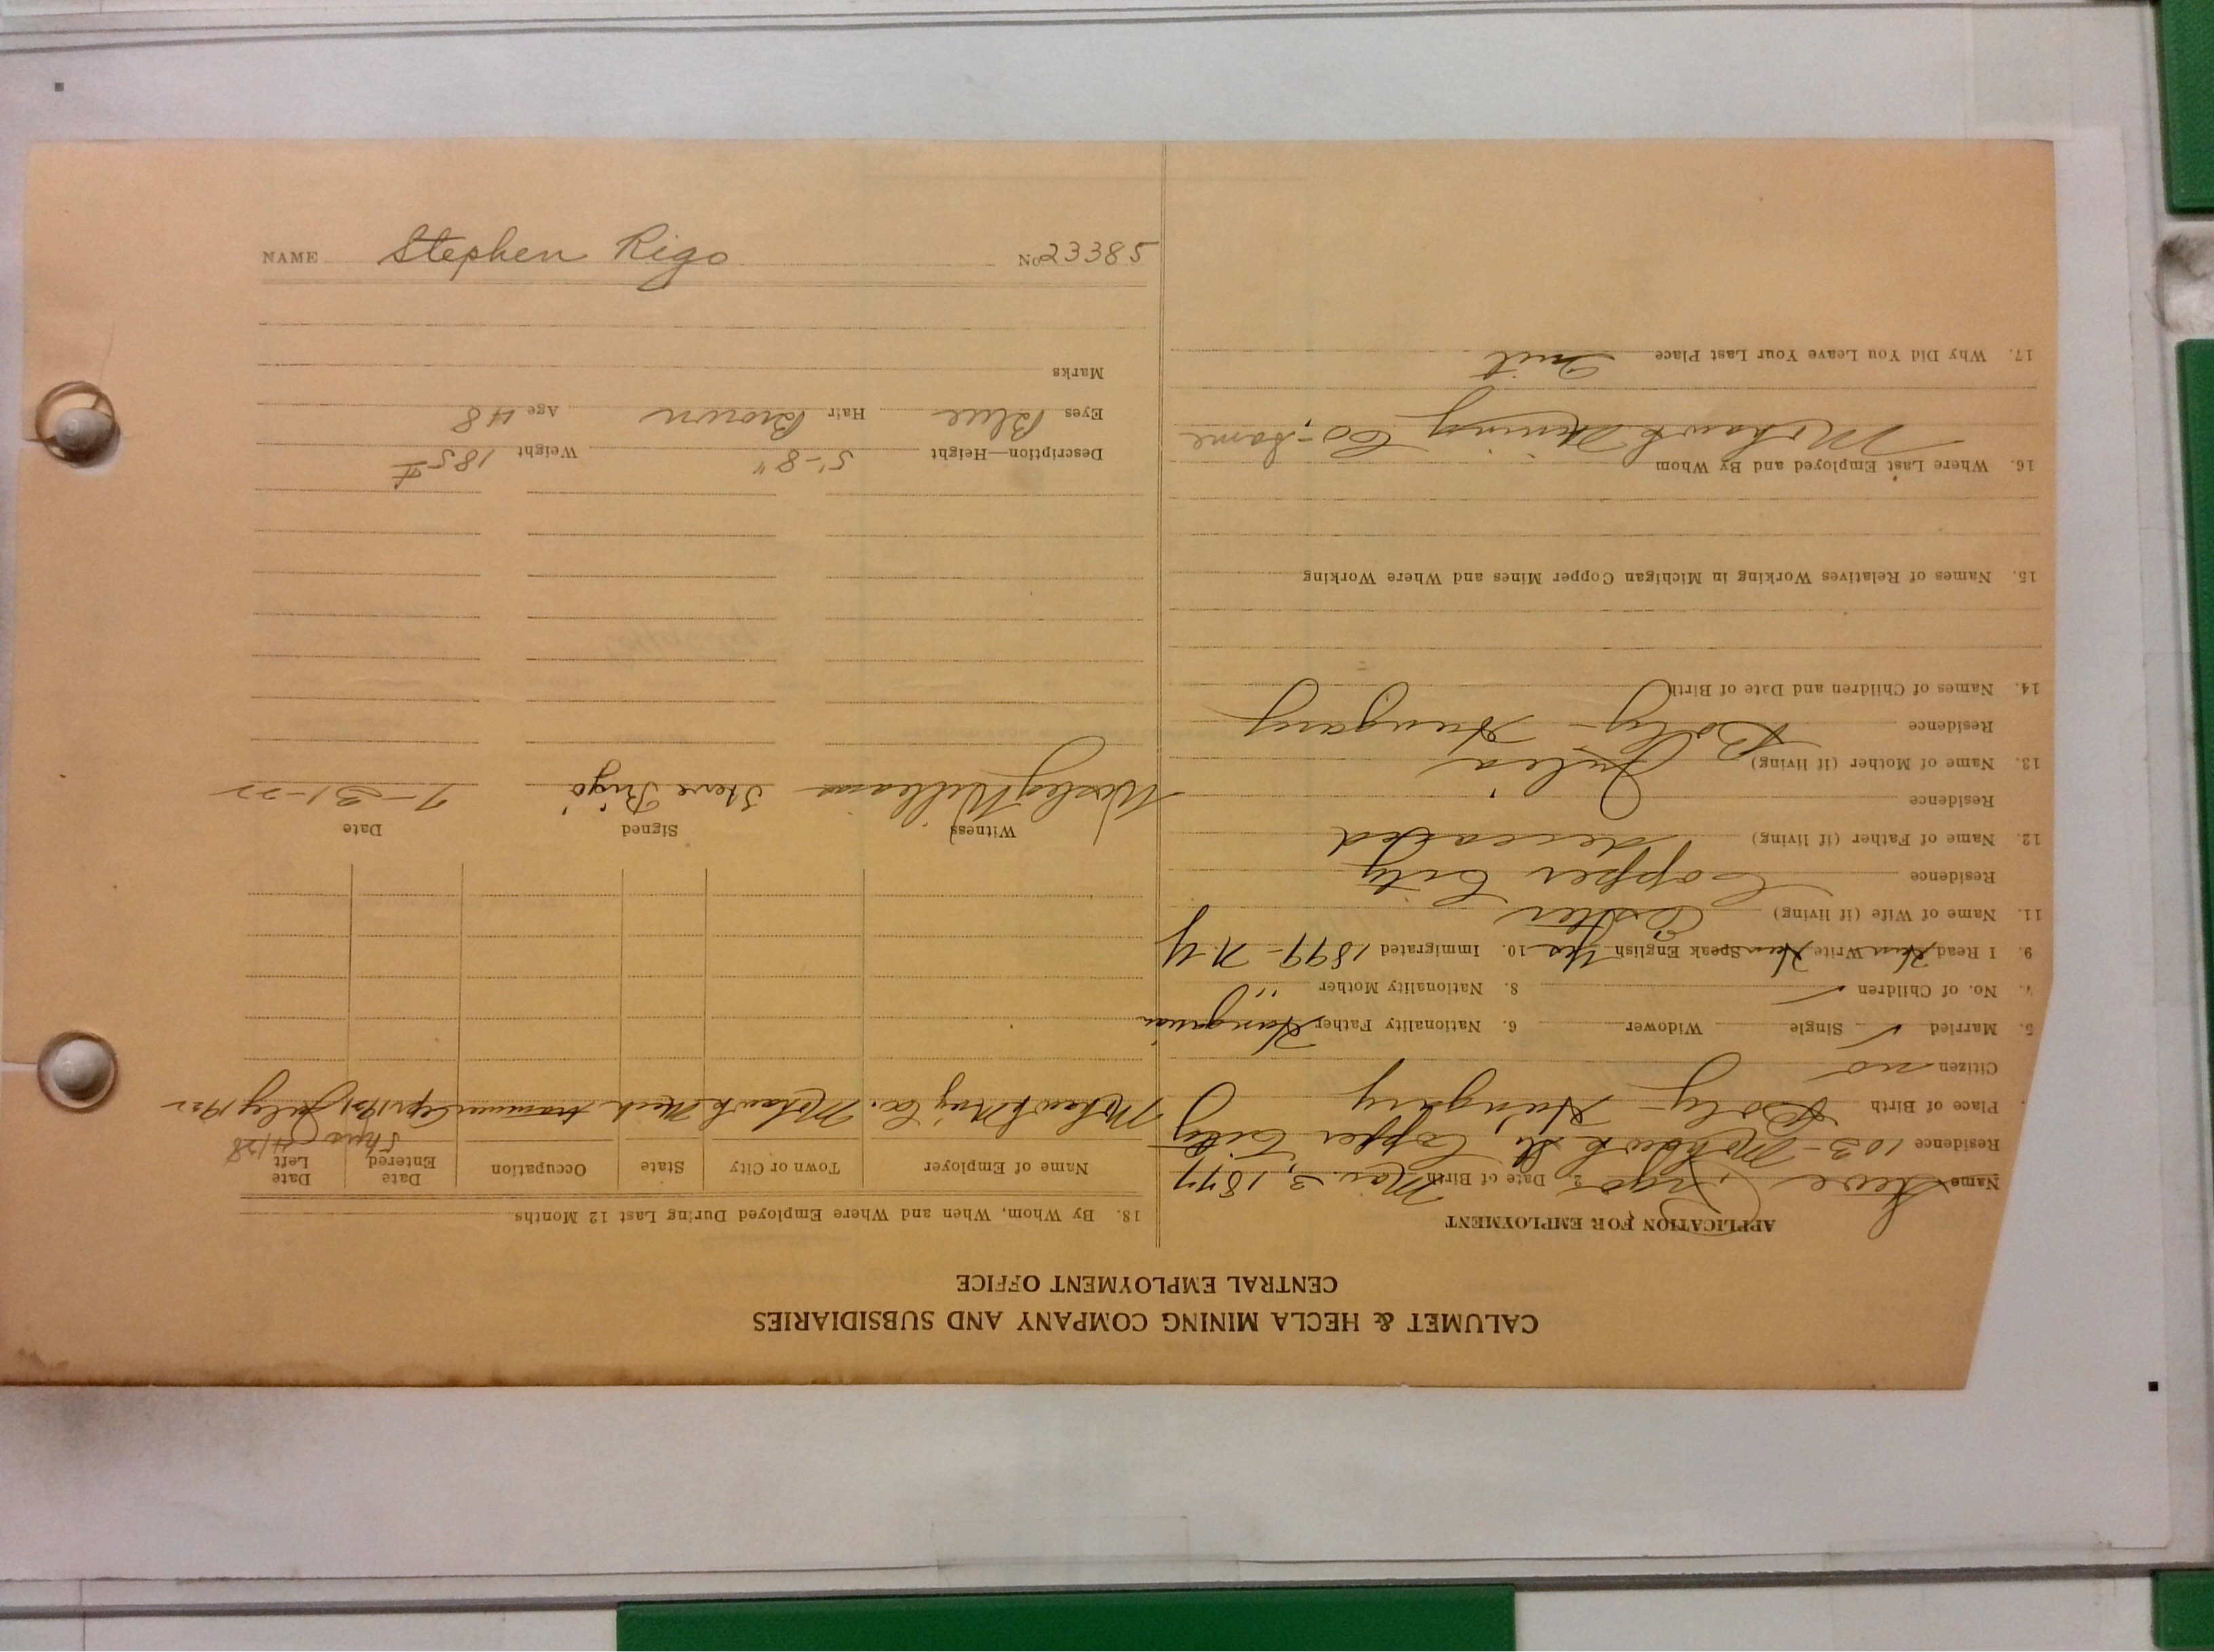 CALUMET & HECLA MINING COMPANY AND SUBSIDIARIES
CENTRAL EMPLOYMENT OFFICE
APPLICATION FOR EMPLOYMENT
Name Steve Rigo 2. Date of Birth Mar. 3, 1877
Residence 103 - Mohawk St., Copper City
Place of Birth Boly - Hungary
Citizen no
5. Married ✓ Single Widower 6. Nationality Father Hungarian
7. No. of Children ✓ 8. Nationality Mother "
9. I Read Hun Write Hun Speak English Yes 10. Immigrated 1899 - N.Y
11. Name of Wife (if living) Ester
Residence Copper City
12. Name of Father (if living) deceased
Residence
13. Name of Mother (if living) Julia
Residence Boly - Hungary
14. Names of Children and Date of Birth
15. Names of Relatives Working in Michigan Copper Mines and Where Working
16. Where Last Employed and By Whom
Mohawk Mining Co - Same
17. Why Did You Leave Your Last Place Quit
18. By Whom, When and Where Employed During Last 12 Months
Name of Employer Town or City State Occupation Date Entered Date Left
Mohawk Mng Co. Mohawk Mich trammer July 1922
Witness Signed Date
Wesley Williams Steve Rigó 7-31-22
Description—Height 5'-8" Weight 185 ±
Eyes Blue Hair Brown Age 48
Marks
NAME Stephen Rigo No 23385